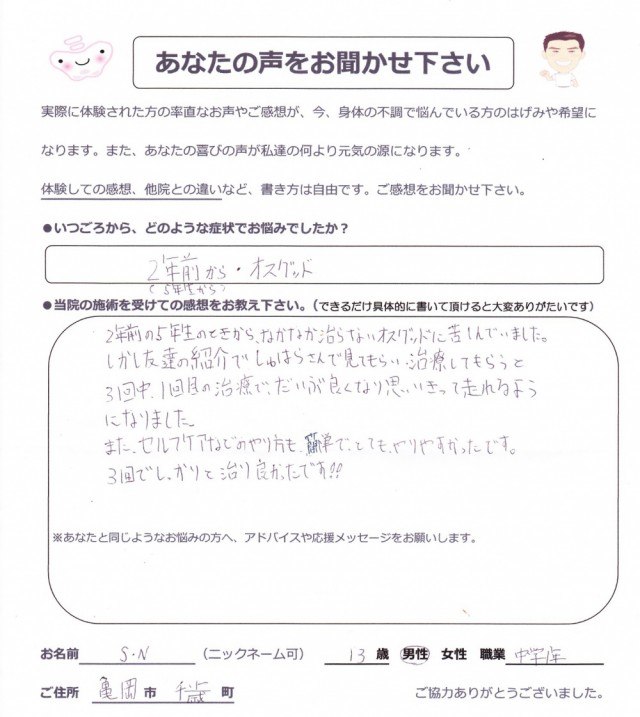 あなたの声をお聞かせ下さい
実際に体験された方の率直なお声やご感想が、今、身体の不調で悩んでいる方のはげみや希望に
なります。また、あなたの喜びの声が私達の何より元気の源になります。
体験しての感想、他院との違いなど、書き方は自由です。ご感想をお聞かせ下さい。
●いつごろから、どのような症状でお悩みでしたか？
2年前から・オスグッド
(5年生から)
●当院の施術を受けての感想をお教え下さい。（できるだけ具体的に書いて頂けると大変ありがたいです）
2年前の5年生のときから、なかなか治らないオスグッドに苦しんでいました。
しかし友達の紹介でしゅはらさんで見てもらい、治療してもらうと
3回中、1回目の治療で、だいぶ良くなり思いきって走れるよう
になりました。
また、セルフケアなどのやり方も、簡単で、とても、やりやすかったです。
3回でしっかりと治り良かったです!!
※あなたと同じようなお悩みの方へ、アドバイスや応援メッセージをお願いします。
お名前 S・N （ニックネーム可） 13 歳 男性 女性 職業 中学1年
ご住所 亀岡 市 千歳 町 ご協力ありがとうございました。